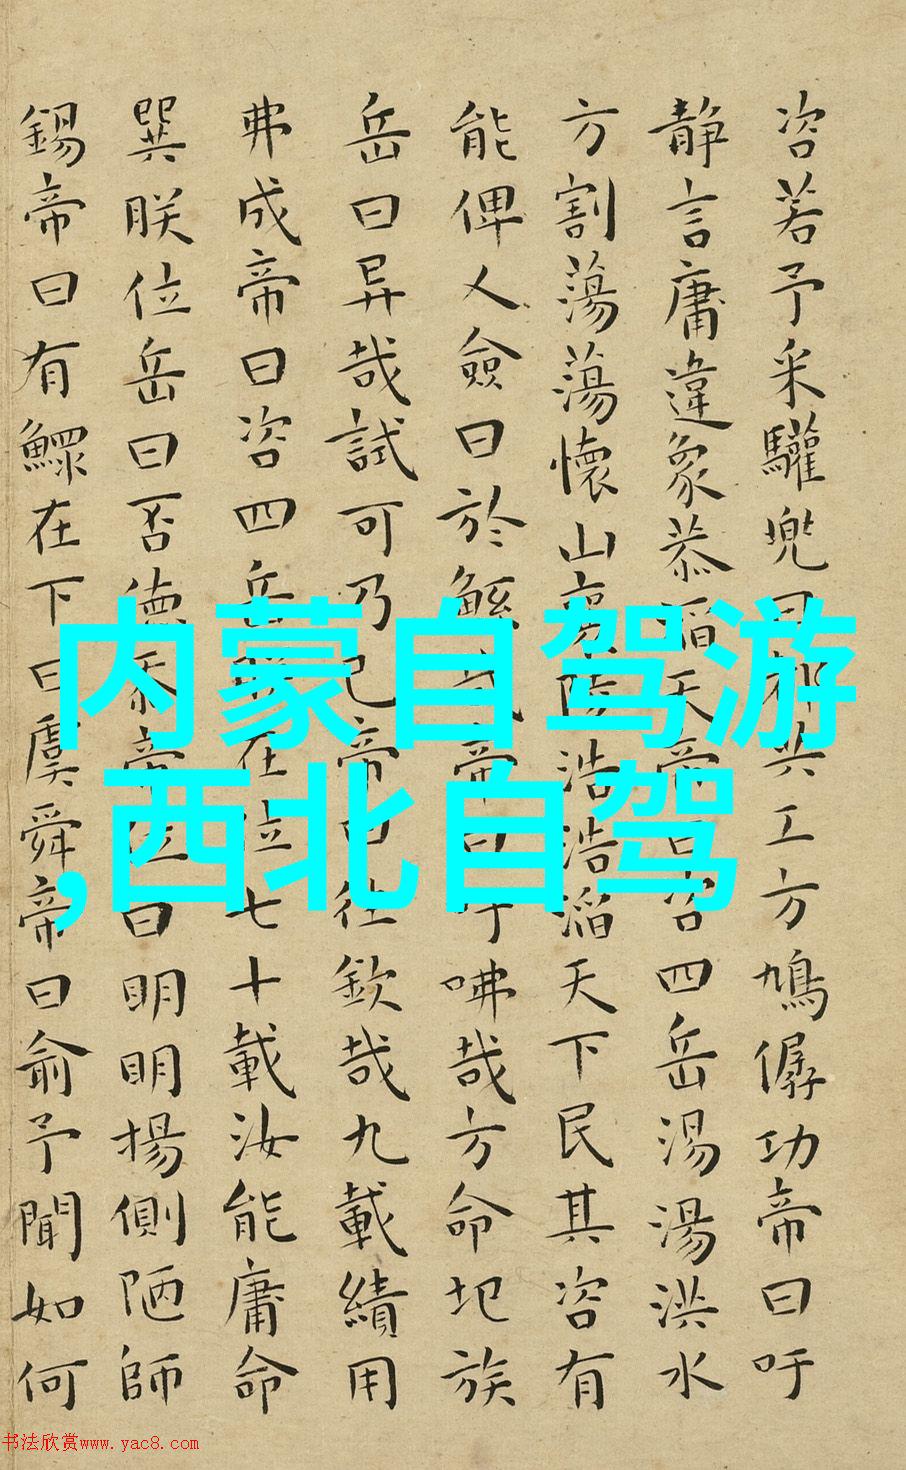 咨若予采驩兜曰都共工方鳩僝功帝曰吁
静言庸違象恭滔天帝曰咨四岳湯湯洪水
方割蕩蕩懷山襄陵浩浩滔天下民其咨有
能俾乂僉曰於鯀哉帝曰吁咈哉方命圮族
岳曰异哉試可乃已帝曰往欽哉九載績用
弗成帝曰咨四岳朕在位七十載汝能庸命
巽朕位岳曰否德忝帝位曰明明揚側陋師
錫帝曰有鰥在下曰虞舜帝曰俞予聞如何
内蒙自驾游
,西北自驾
书法欣赏www.yac8.com